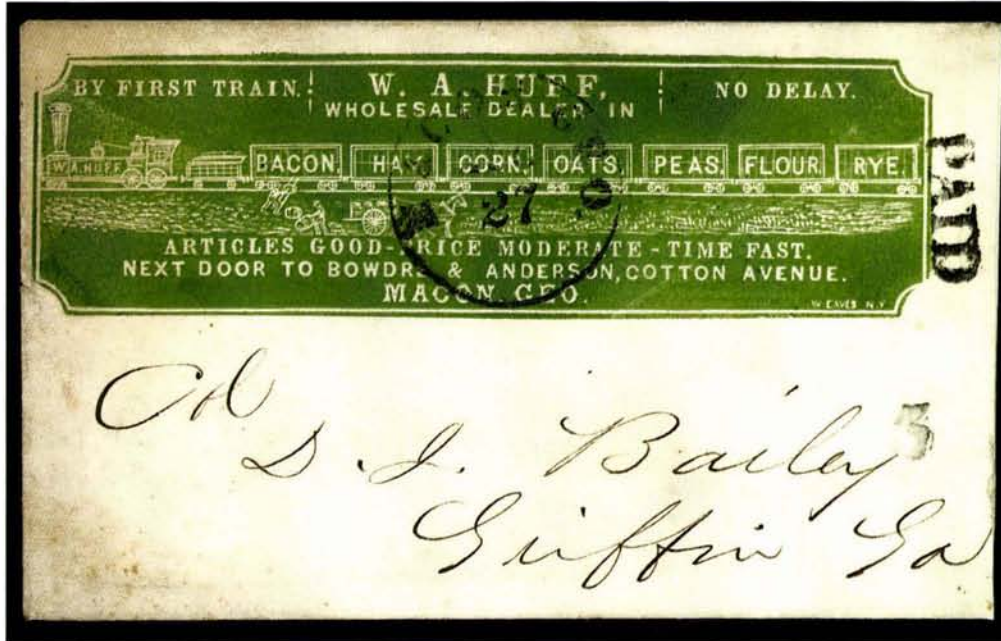 BY FIRST TRAIN. W. A. HUFF, NO DELAY.
WHOLESALE DEALER IN
W.A.HUFF BACON. HAY. CORN. OATS. PEAS. FLOUR. RYE.
ARTICLES GOOD-PRICE MODERATE-TIME FAST.
NEXT DOOR TO BOWDRE & ANDERSON, COTTON AVENUE.
MACON, GEO.
W EAVES N.Y.
27
PAID
3
Col
D. J. Bailey
Griffin Ga